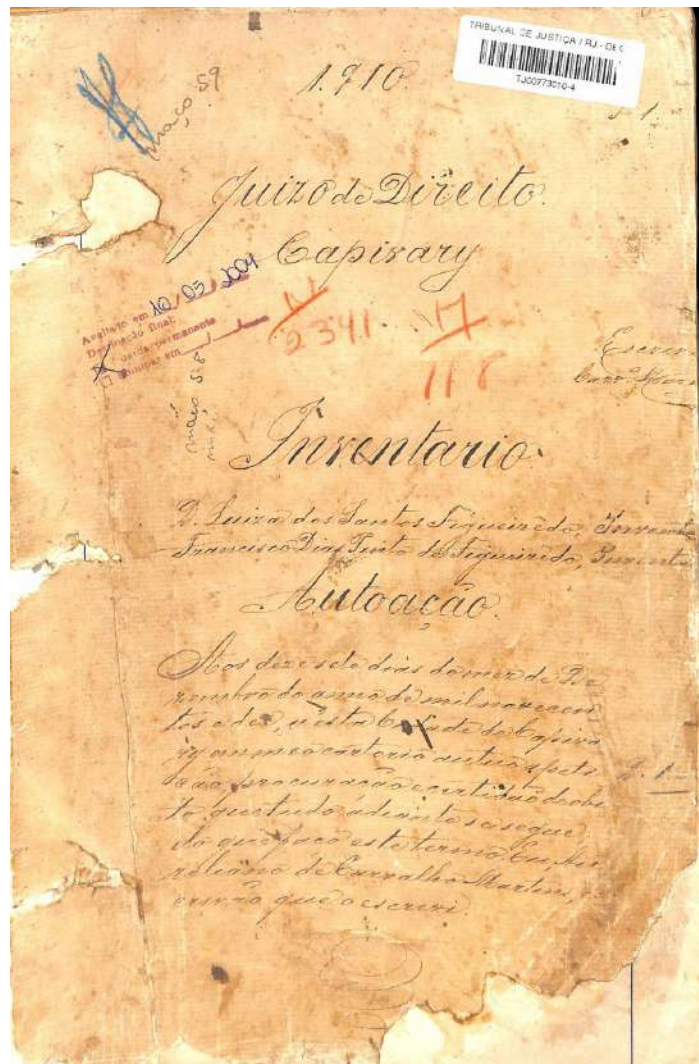 TRIBUNAL DE JUSTIÇA / RJ - DE
TJ00773010-4
1.910.
maço 59
Juizo de Direito.
Capivary
Avaliado em 10/05/2004
Destinação final:
guarda permanente
eliminar em
N
2341
17
118
maço 58
Inventario.
D. Luiza dos Santos Figueirêdo,
Francisco Dias Pinto de Figueirêdo,
Autoação.
Aos dezesete dias do mez de De
zembro do anno de mil novecen
tos e dez, n'esta Cidade de Capiva
ry em meo cartorio autuo a peti
ção, procuração e certidão de obi
to que tudo adiante se segue
do que faço este termo. Eu, Au
reliano de Carvalho Martins, es
crivão que o escrevi.